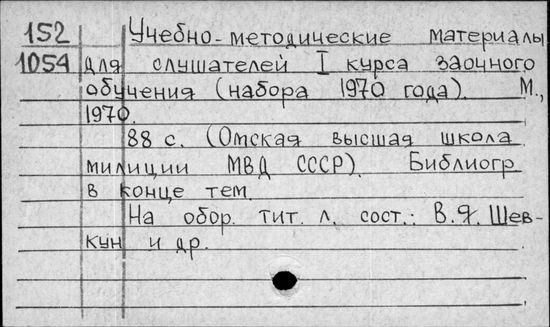 152 Учебно-методические материалы
1054 для слушателей I курса заочного
обучения (набора 1970 года). М.,
1970.
88 с. (Омская высшая школа
милиции МВД СССР). Библиогр.
в конце тем.
На обор. тит. л. сост.: В.Я. Шев-
кун и др.